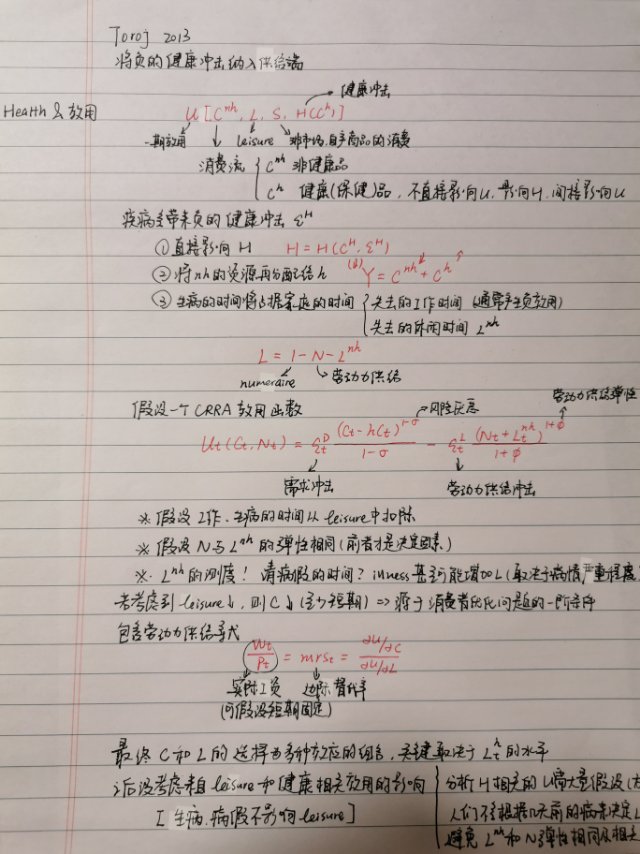 Toroj 2013
将负的健康冲击纳入供给端
Health & 效用
健康冲击
U [C^nh, L, S, H(C^h)]
一期效用 leisure 非市场,自产商品的消费
消费流 { C^nh 非健康品
C^h 健康(保健)品, 不直接影响U, 影响H, 间接影响U
疾病会带来负的健康冲击 ε^H
① 直接影响 H H = H(C^H, ε^H)
② 将nh的资源再分配给h Y = C^nh↓ + C^h↑
③ 生病的时间将占据家庭的时间 { 失去的工作时间 (通常产生负效用)
失去的休闲时间 L^nh
L = 1 - N - L^nh
numeraire 劳动力供给
假设一个 CRRA 效用函数 风险厌恶 劳动力供给弹性
Ut(Ct, Nt) = ε_t^D (Ct - hCt)^1-σ / 1-σ - ε_t^L (Nt + L_t^nh)^1+φ / 1+φ
需求冲击 劳动力供给冲击
※ 假设工作、生病的时间从 leisure 中扣除
※ 假设 N与L^nh 的弹性相同 (前者才是决定因素)
※ L^nh 的测度! 请病假的时间? illness 甚至可能增加L (取决于病情严重程度
若考虑到 leisure↓, 则C↓ (至少短期) => 源于消费者优化问题的一阶条件
包含劳动力供给等式
Wt/Pt = mrst = ∂U/∂C / ∂U/∂L
实际工资 边际替代率
(可假设短期固定)
最终C和L的选择为多种效应的组合, 关键取决于 L_t^h 的水平
之后没考虑来自 leisure 和健康相关效用的影响 { 分析H相关的U需大量假设
[生病、病假不影响leisure] 人们不会根据几天前的病来决定L
避免 L^nh 和N弹性相同及相关